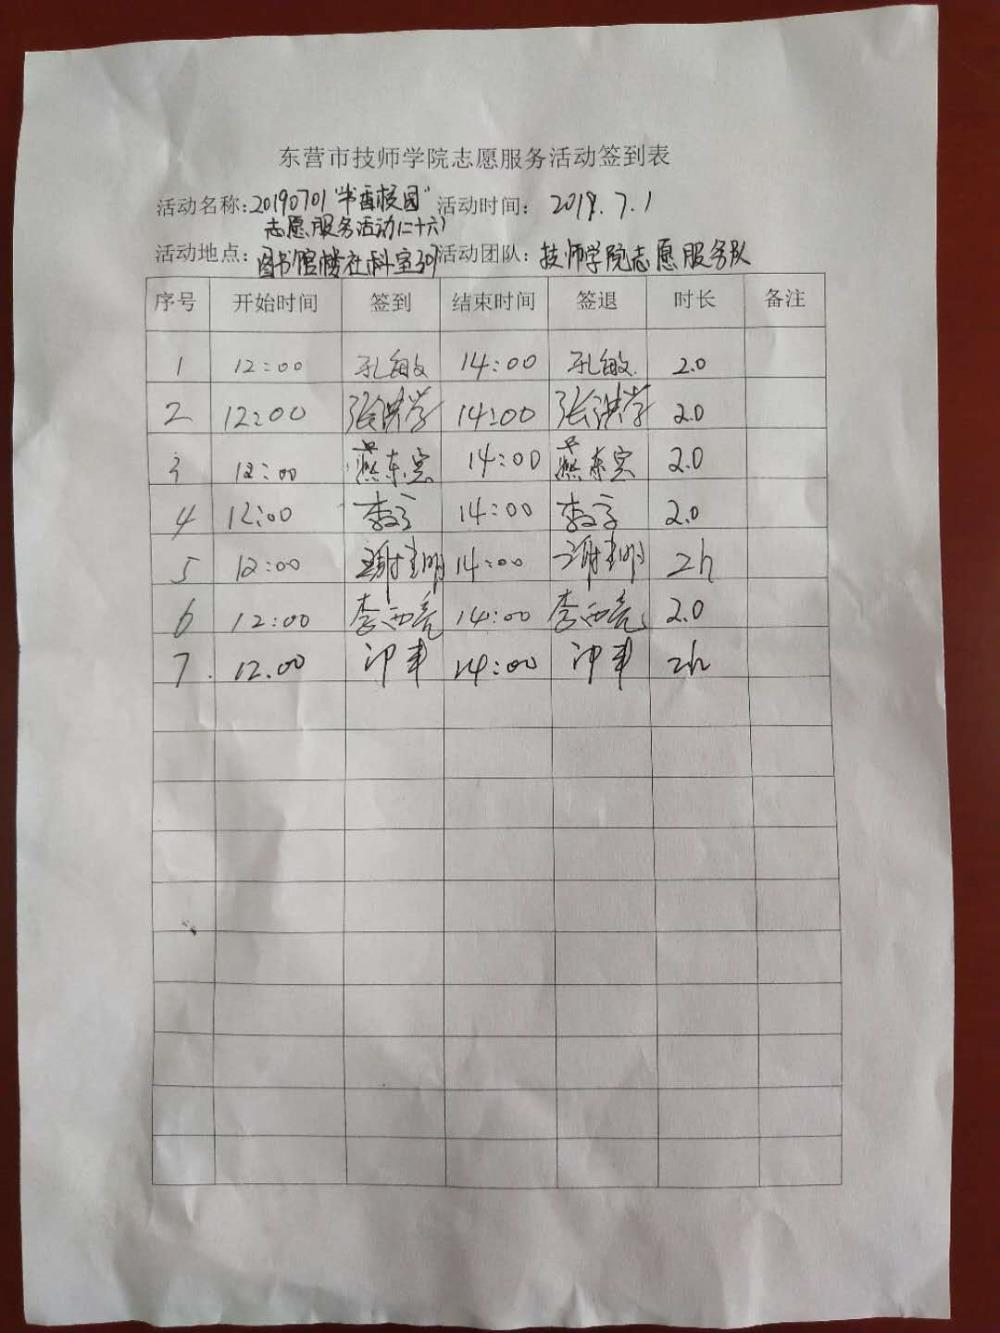 东营市技师学院志愿服务活动签到表
活动名称:20190701"书香校园" 活动时间: 2019.7.1
志愿服务活动(二十六)
活动地点: 图书馆楼社科室307 活动团队: 技师学院志愿服务队
序号 开始时间 签到 结束时间 签退 时长 备注
1 12:00 孔敏 14:00 孔敏 2.0
2 12:00 张洪学 14:00 张洪学 2.0
3 12:00 燕东宾 14:00 燕东宾 2.0
4 12:00 李 14:00 李 2.0
5 12:00 谢明 14:00 谢明 2h
6 12:00 李西亮 14:00 李西亮 2.0
7. 12.00 14:00 2h